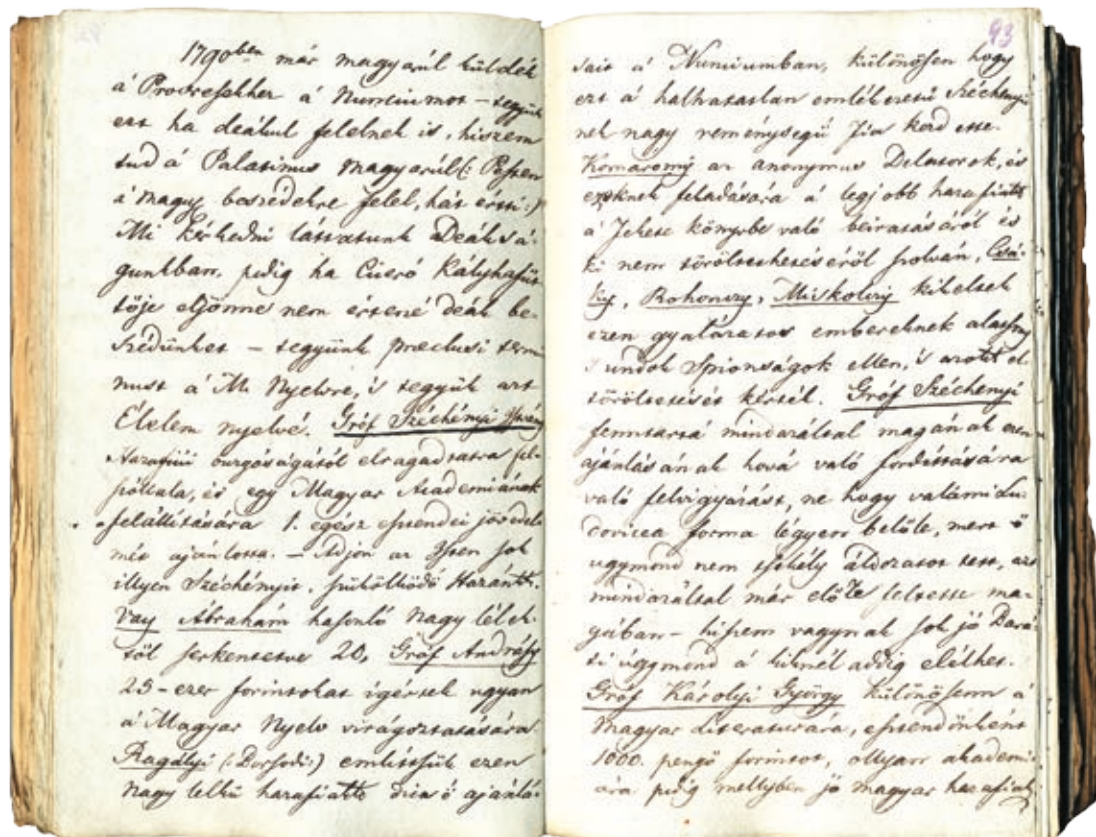 1790ben már magyarúl küldék
á Procresekher á Nunciumot – tegyük
ezt ha deákul felelnek is, hiszem
tud á Palatinus magyarúl (: Pesten
á magy beszédekre felel, hát érti :)
Mi kérkedni láttatunk Deáksá-
gunkban, pedig ha Ciceró Kályhafűt
tője eljönne nem értené deák be-
szédünket – tegyünk præclusi term
nust á Mi Nyelvre, is tegyük azt
Élelem nyelvé. Gróf Széchényi István
Hazafiúi buzgóságától elragadtatva fel
szóllala, és egy Magyar Academiának
felállítására 1. egész esztendei jövedel
mét ajánlotta. – Adjon az Isten sok
illyen Széchényit, szűkölködő Hazánk
Vay Ábrahám hasonló nagy lélek-
től serkentetve 20, Gróf Andrásy
25-ezer forintokat igértek ugyan
a' Magyar Nyelv virágoztatására
Ragályi (: Borsodi :) említsük ezen
nagy lelkű hazafiakk dicső ajánlá-
93
sait á Nunciumban, különösen hogy
ezt á halhatatlan emlékezetű Széchenyi
nek nagy reménységű Fia kezdette.
Komáromy az anonymus Delatorok, és
ezeknek feladására á legjobb hazafiakk
á Fekete könyvbe való béiratásáról és
ki nem töröltethetéséről szolván, Csá-
ky, Rohonczy, Miskolczy kikeltek
ezen gyalázatos embereknek alatsony
s undok Spionságok ellen, is azokk el
töröltetését kérték. Gróf Széchenyi
fenntartá mindazáltal magának ezen
ajánlásának hová való fordittására
való felvigyázást, ne hogy valami Lu
dovicea forma légyen belőle, mert ő
úgymond nem tsekély áldozatot tett, azt
mindazáltal már előre feltette ma-
gában – hiszem vagynak sok jó Bará
ti úgymond á kiknél addig elélhet.
Gróf Károlyi György különösenn á
Magyar Literaturára, esztendőnként
1000. pengő forintot, ollyan akademi-
ára pedig mellyben jó magyar hazafiak